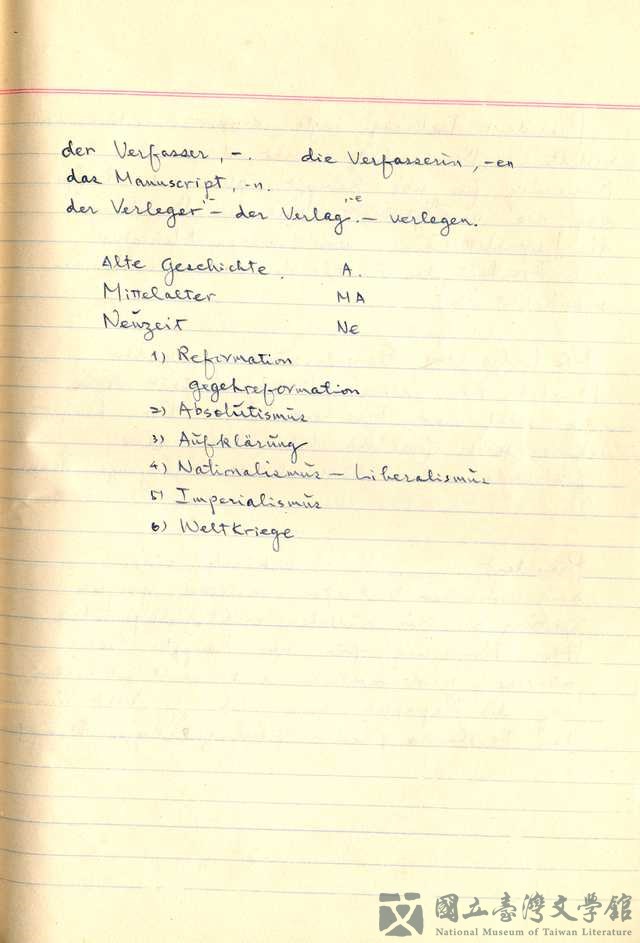 der Verfasser, -. die Verfasserin, -en
das Manuscript, -n.
der Verleger, - - der Verlag, -e. - verlegen.
Alte Geschichte. A.
Mittelalter MA
Neuzeit NE
1) Reformation
gegenreformation
2) Absolutismus
3) Aufklärung
4) Nationalismus - Liberalismus
5) Imperialismus
6) Weltkriege
國立臺灣文學館
National Museum of Taiwan Literature